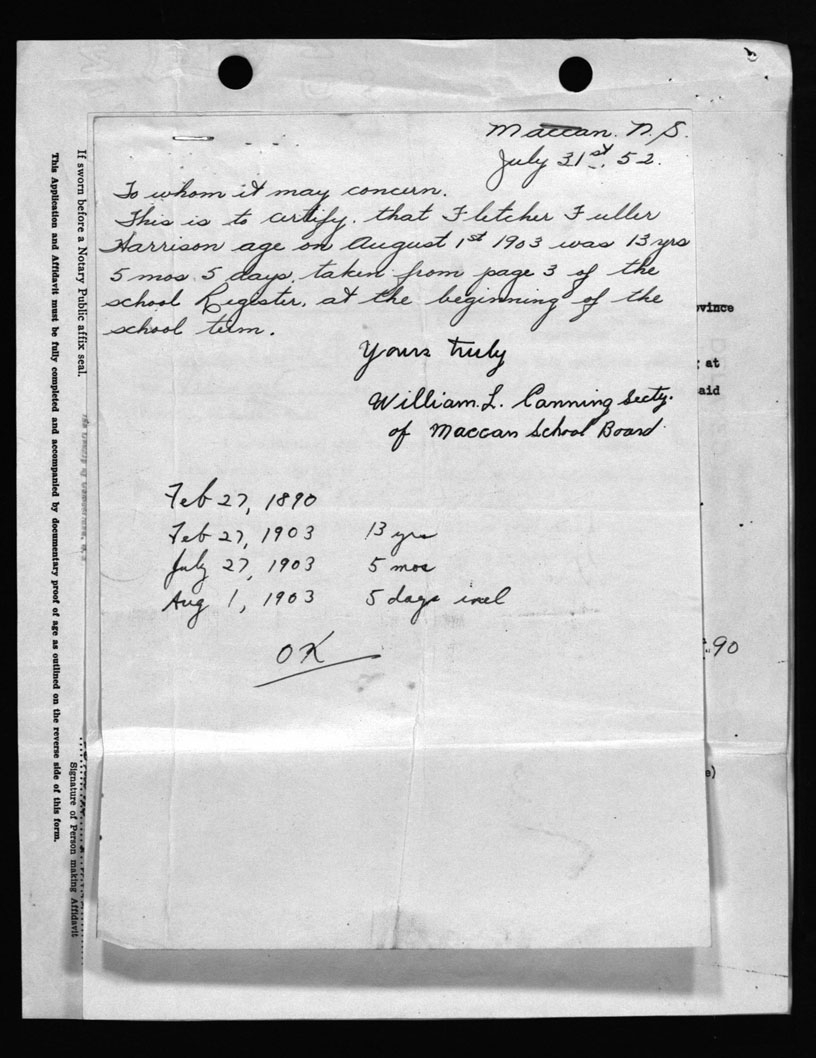 Maccan. N.S.
July 31st. 52.
To whom it may concern.
This is to certify. that Fletcher Fuller
Harrison age on August 1st 1903 was 13 yrs
5 mos 5 days, taken from page 3 of the
school Register, at the beginning of the
school term.
Yours truly
William. L. Canning Secty.
of Maccan School Board.
Feb 27, 1890
Feb 27, 1903 13 yrs
July 27, 1903 5 mos
Aug 1, 1903 5 days incl
OK
If sworn before a Notary Public affix seal.
This Application and Affidavit must be fully completed and accompanied by documentary proof of age as outlined on the reverse side of this form.
Signature of Person making Affidavit
vince
at
aid
90
e)